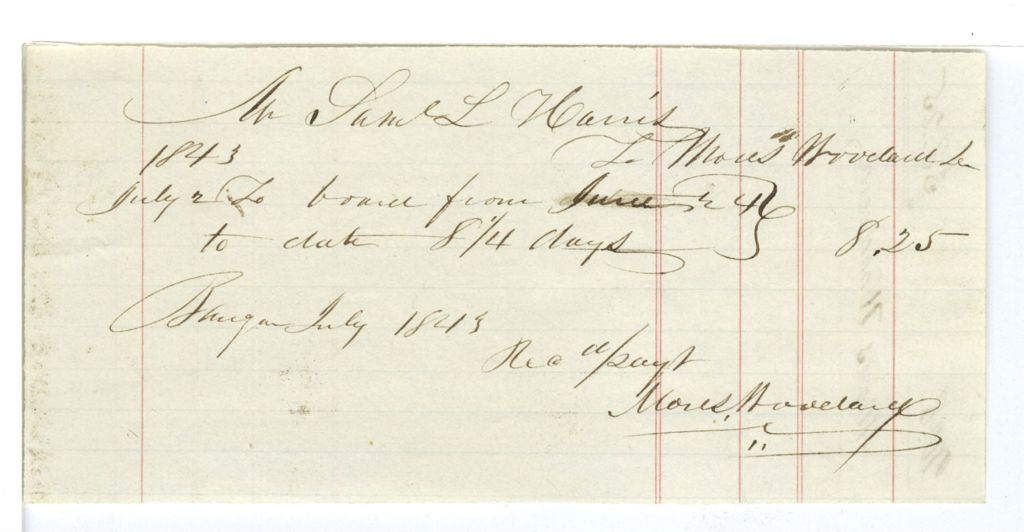 Mr Saml L Harris
1843 To Moses Woodard Dr
July 2 To board from June 24
to date 8 1/4 days 8.25
Bangor July 1843
Recd payt
Moses Woodard